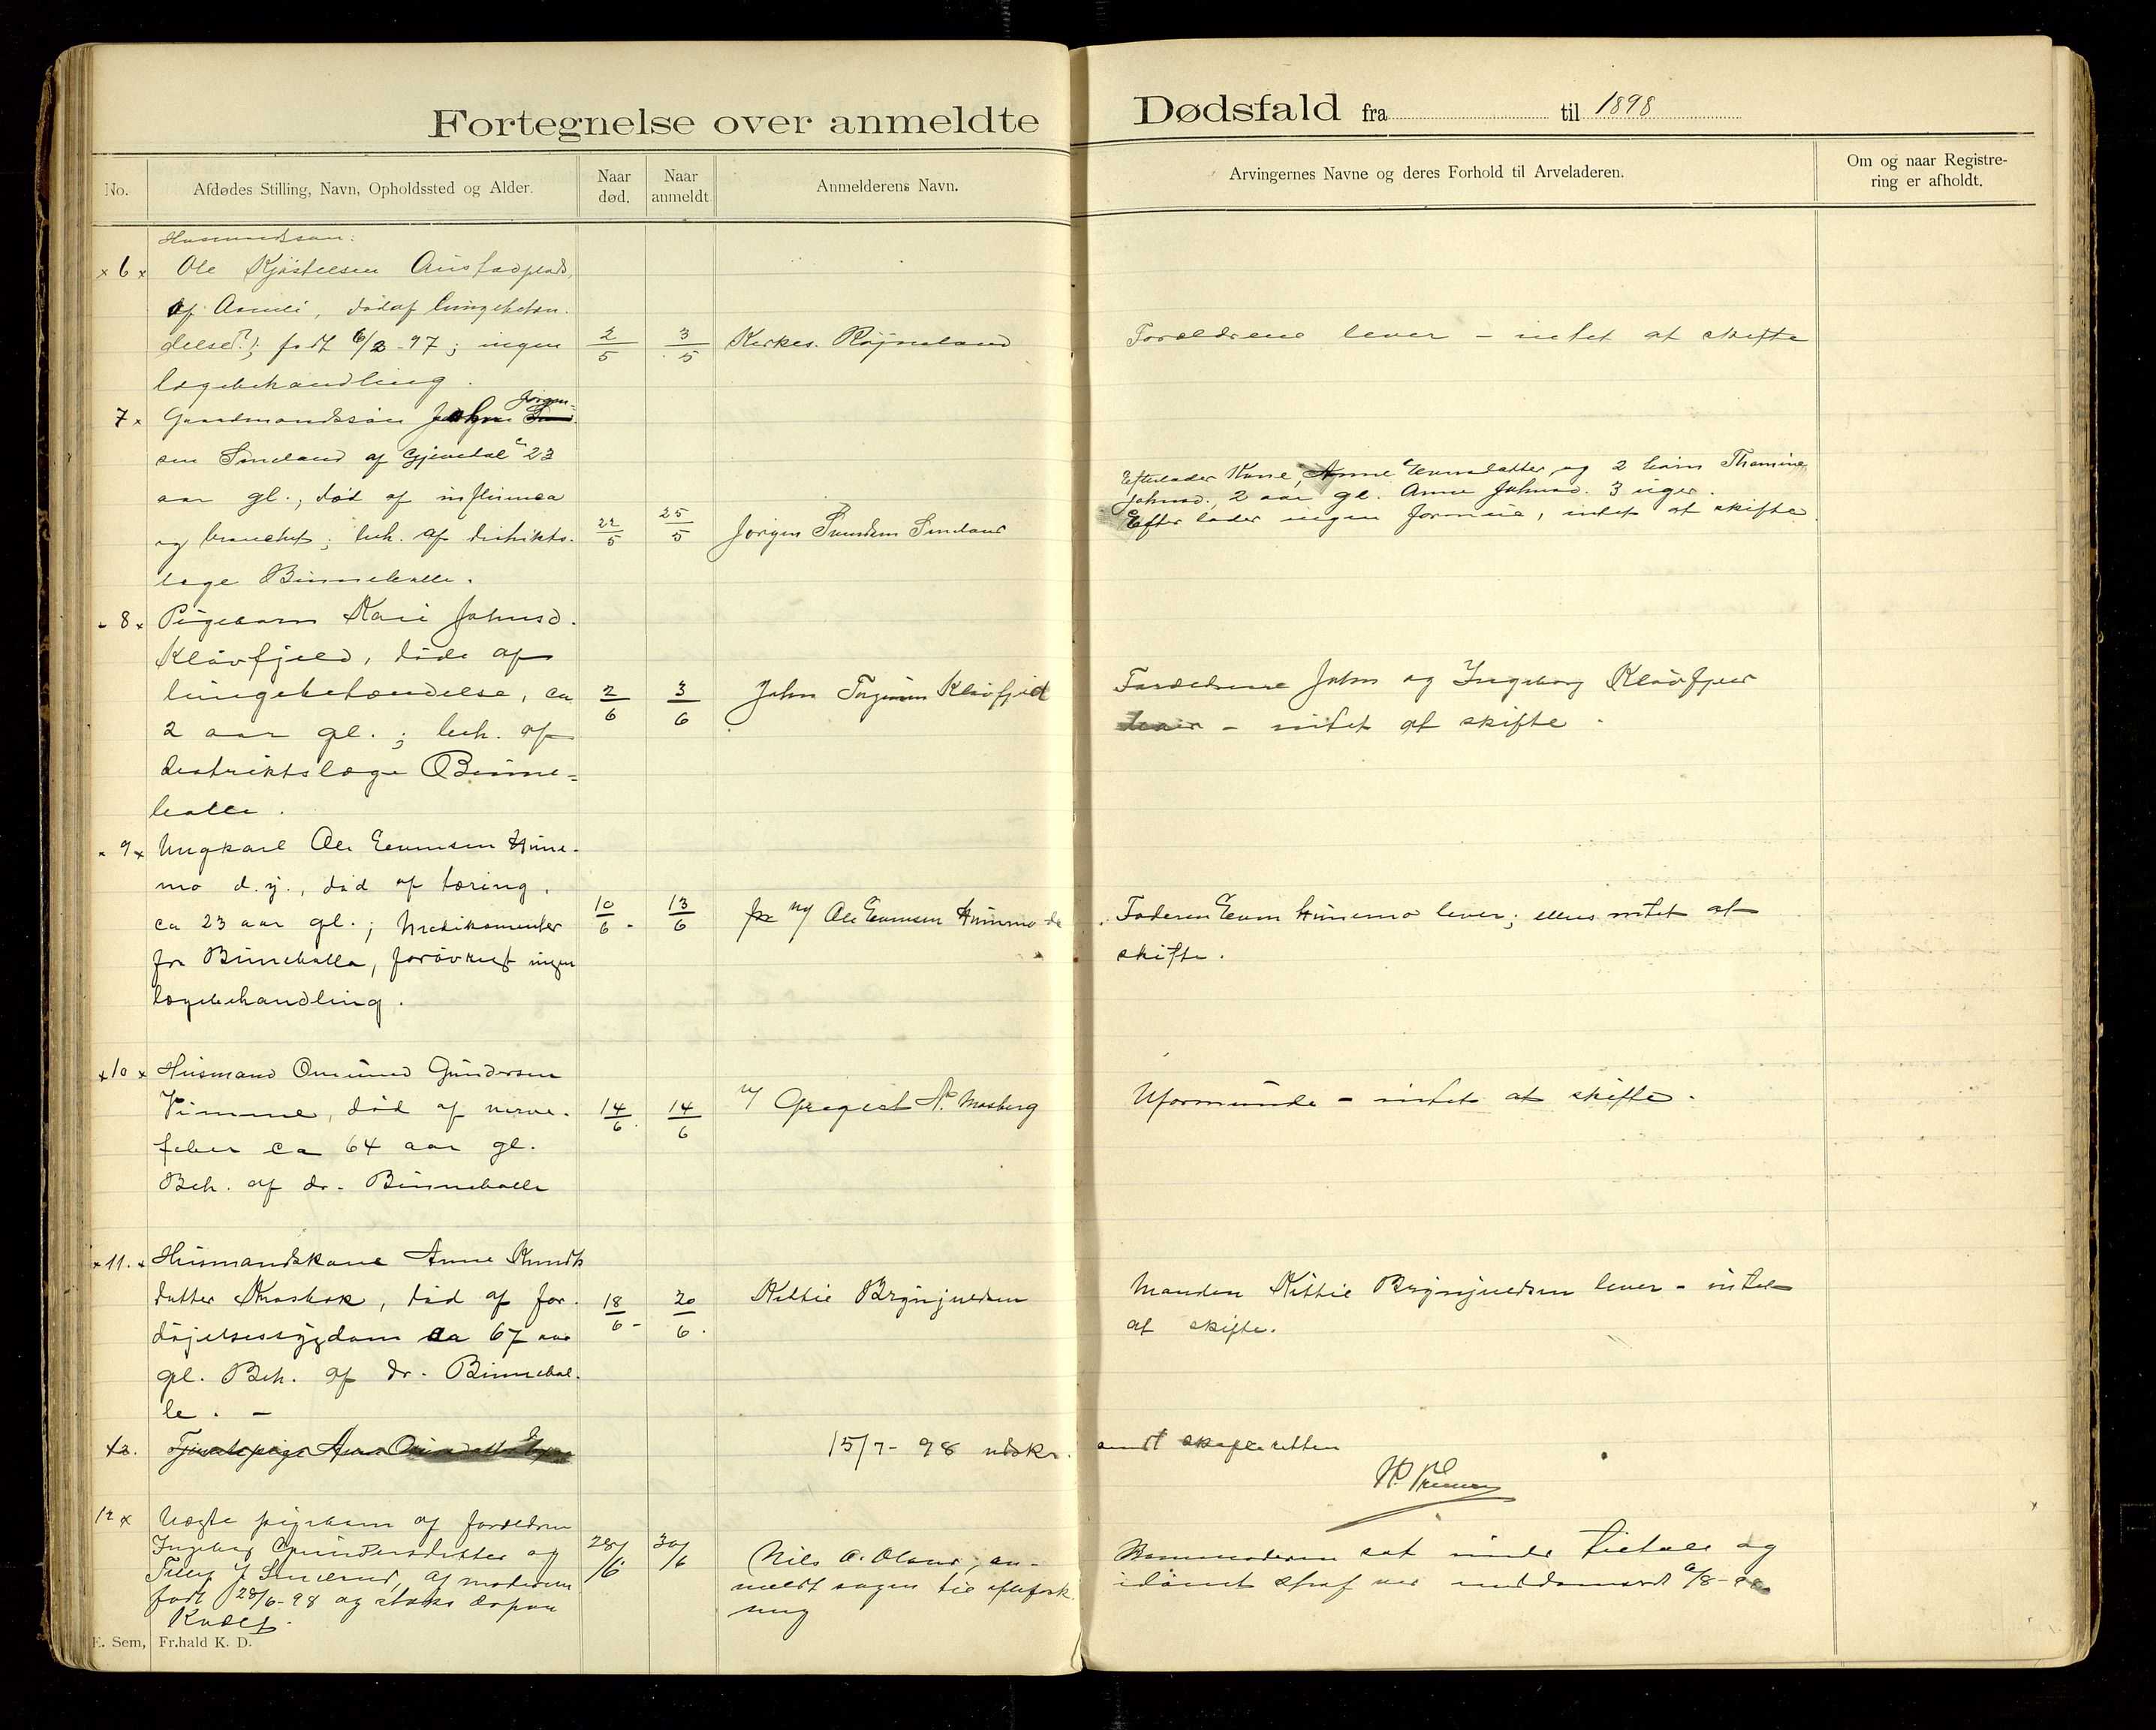 Fortegnelse over anmeldte Dødsfald fra til 1898
No.
Afdødes Stilling, Navn, Opholdssted og Alder.
Naar død.
Naar anmeldt.
Anmelderens Navn.
Arvingernes Navne og deres Forhold til Arveladeren.
Om og naar Registre-
ring er afholdt.
Husmandssøn:
x 6 x Ole Kjøstelsen Austadplads,
af Aamli, død af lungebetæn-
delse(?); født 6/2-97; ingen
2/5 3/5 Kirkes. Røjnaland
Forældrene lever - intet at skifte
lægebehandling.
7 x Gaardmandssøn John Jørgen-
sen Smeland af Gjøvdal 23
aar gl., død af influensa
og bronchit; beh. af distrikts-
22/5 25/5 Jørgen Smeland
læge Binneballe.
Efterlader Kone, Anne Evensdatter, og 2 børn Thomine
Johnsd. 2 aar gl. Anne Johnsd. 3 uger.
Efterlader ingen formue, intet at skifte
- 8 x Pigebarn Kari Johnsd.
Kløvfjeld, døde af
lungebetændelse, ca
2 aar gl.; beh. af
distriktslæge Binne-
balle.
2/6 3/6 John Kløvfjeld
Forældrene John og Ingeborg Kløvfjeld
lever - intet at skifte.
- 9 x Ungkarl Ole Evensen Hunemo
d.y., død af tæring.
ca 23 aar gl.; Medikamenter
fra Binneballe, forøvrigt ingen
lægebehandling.
10/6 - 13/6 Ole Evensen
Faderen Even Hunemo lever; ellers intet at
skifte.
x 10 x Husmand Omund Gundersen
Vimme, død af nerve-
feber ca 64 aar gl.
Beh. af dr. Binneballe
14/6. 14/6 Mosberg
Uformuende - intet at skifte.
x 11. x Husmandskone Anne Knuds
datter, død af for-
døjelsessygdom ca 67 aar
gl. Beh. af dr. Binnebal-
le. -
18/6 - 20/6. Kittil Brynjuldsen
Manden Kittil Brynjuldsen lever - intet
at skifte.
12.
15/7-98 udskr. sendt skifteretten
12 x Uægte pigebarn af forældre
Ingeborg Gundersdatter og
af moderen
født 28/6-98 og straks derpaa
Kvalt.
28/6 30/6 Nils O. Oland, an-
meldt sagen til efterforsk-
ning
Barnemoderen sat under tiltale og
idømt straf ved meddomsret
E. Sem, Fr.hald K. D.